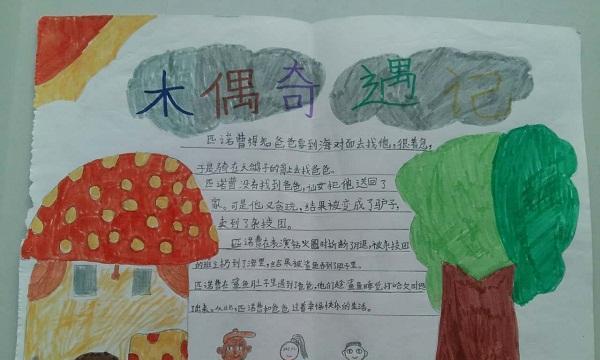 木偶奇遇记
匹诺曹得知爸爸要到海对面去找他,很着急,
于是骑在大鸽子的背上去找爸爸。
匹诺曹没有找到爸爸,仙女把他送回了
家。可是他又贪玩,结果被变成了驴子,
卖到了杂技团。
匹诺曹在表演钻火圈时折断了腿,被杂技团
的班主扔到了海里,结果被鲨鱼吞到了肚子里。
匹诺曹在鲨鱼肚子里遇到了爸爸,他们趁鲨鱼睡觉打哈欠时逃
出来。从此,匹诺曹和爸爸过着幸福快乐的生活。